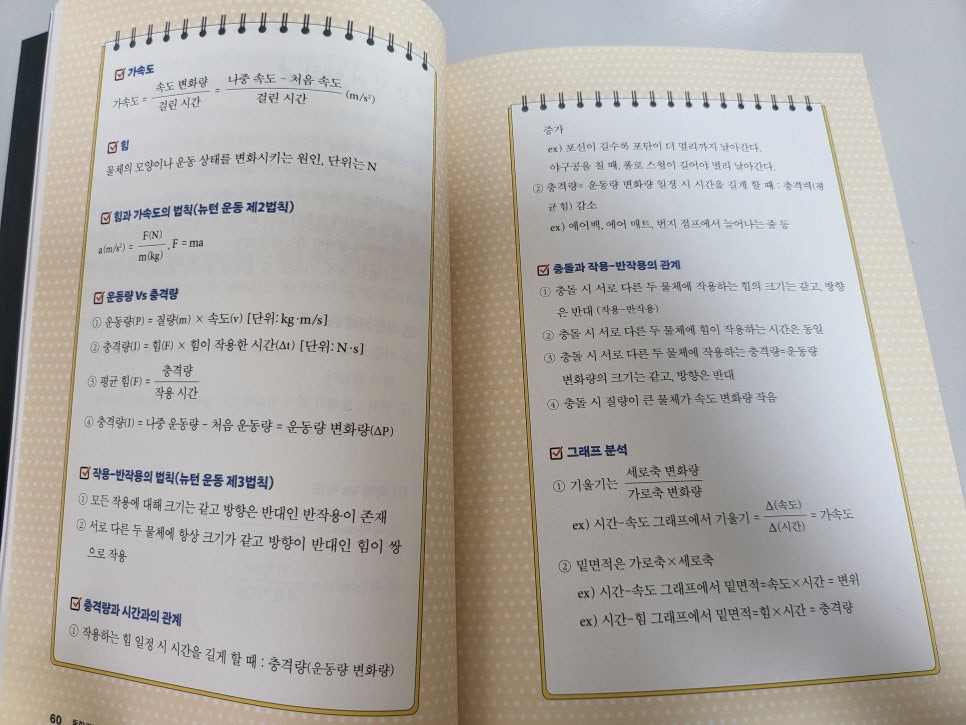 가속도
가속도 = 속도 변화량 / 걸린 시간 = 나중 속도 - 처음 속도 / 걸린 시간 (m/s²)
힘
물체의 모양이나 운동 상태를 변화시키는 원인, 단위는 N
힘과 가속도의 법칙(뉴턴 운동 제2법칙)
a(m/s²) = F(N) / m(kg) , F = ma
운동량 Vs 충격량
① 운동량(P) = 질량(m) × 속도(v) [단위: kg·m/s]
② 충격량(I) = 힘(F) × 힘이 작용한 시간(Δt) [단위: N·s]
③ 평균 힘(F) = 충격량 / 작용 시간
④ 충격량(I) = 나중 운동량 - 처음 운동량 = 운동량 변화량(ΔP)
작용-반작용의 법칙(뉴턴 운동 제3법칙)
① 모든 작용에 대해 크기는 같고 방향은 반대인 반작용이 존재
② 서로 다른 두 물체에 항상 크기가 같고 방향이 반대인 힘이 쌍
으로 작용
충격량과 시간과의 관계
① 작용하는 힘 일정 시 시간을 길게 할 때 : 충격량(운동량 변화량)
60
증가
ex) 포신이 길수록 포탄이 더 멀리까지 날아간다.
야구공을 칠 때, 폴로 스윙이 길어야 멀리 날아간다.
② 충격량= 운동량 변화량 일정 시 시간을 길게 할 때 : 충격력(평
균 힘) 감소
ex) 에어백, 에어 매트, 번지 점프에서 늘어나는 줄 등
충돌과 작용-반작용의 관계
① 충돌 시 서로 다른 두 물체에 작용하는 힘의 크기는 같고, 방향
은 반대 (작용-반작용)
② 충돌 시 서로 다른 두 물체에 힘이 작용하는 시간은 동일
③ 충돌 시 서로 다른 두 물체에 작용하는 충격량=운동량
변화량의 크기는 같고, 방향은 반대
④ 충돌 시 질량이 큰 물체가 속도 변화량 작음
그래프 분석
① 기울기는 세로축 변화량 / 가로축 변화량
ex) 시간-속도 그래프에서 기울기 = Δ(속도) / Δ(시간) = 가속도
② 밑면적은 가로축×세로축
ex) 시간-속도 그래프에서 밑면적=속도×시간 = 변위
ex) 시간-힘 그래프에서 밑면적=힘×시간 = 충격량